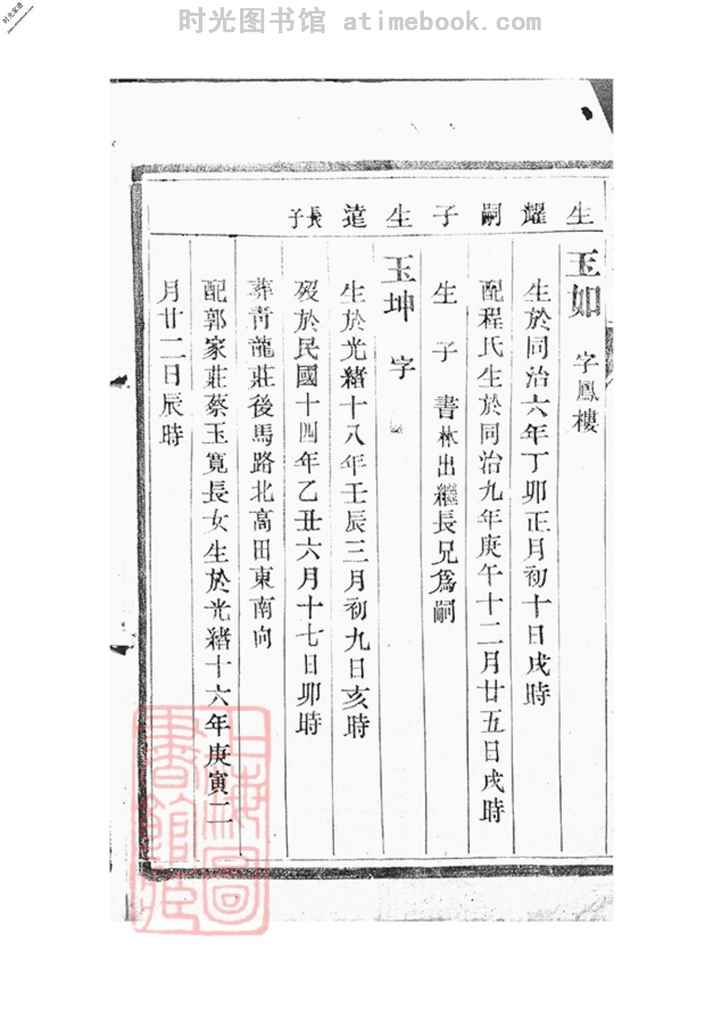 时光图书馆 atimebook.com
生耀嗣子生達長子
玉如 字鳳樓
生於同治六年丁卯正月初十日戌時
配程氏生於同治九年庚午十二月廿五日戌時
生子 書林出繼長兄爲嗣
玉坤 字
生於光緒十八年壬辰三月初九日亥時
歿於民國十四年乙丑六月十七日卯時
葬青龍莊後馬路北高田東南向
配郭家莊蔡玉寬長女生於光緒十六年庚寅二
月廿二日辰時
上海圖
書館藏